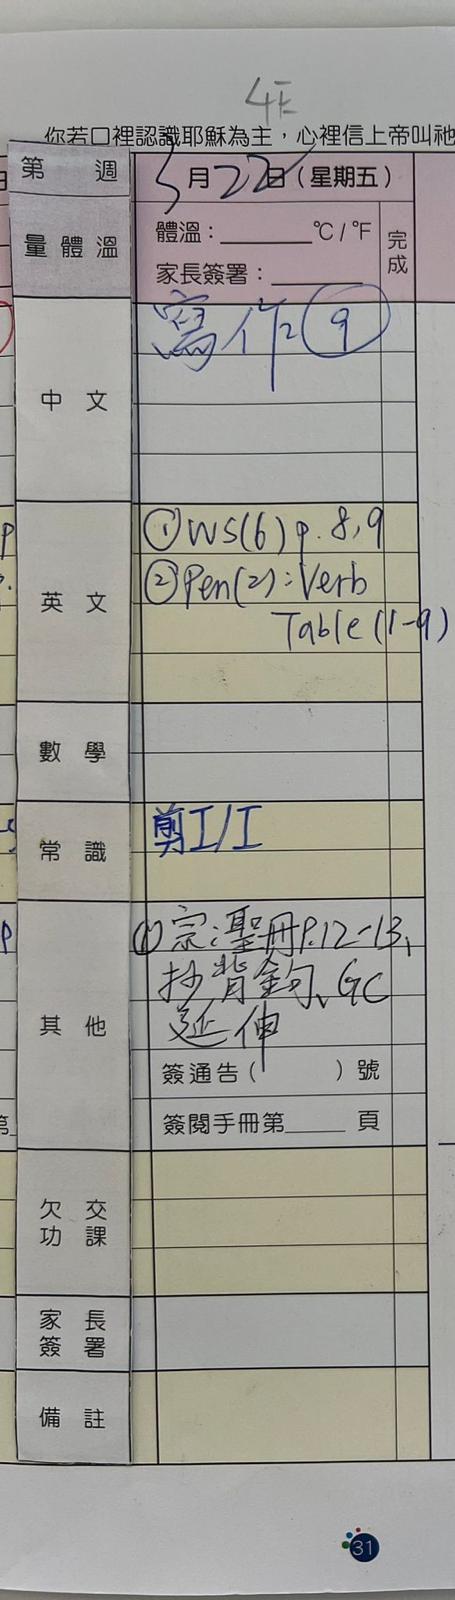 你若口裡認識耶穌為主，心裡信上帝叫祂
第 週
5月22日（星期五）
量體溫
體溫：______℃/℉
完成
家長簽署：______
中文
寫作⑨
英文
①WS(6) p.8,9
②Pen(2):Verb
Table (1-9)
數學
常識
剪工/工
其他
(1)宗:聖冊P.12-13、
抄背金句、GC
延伸
簽通告( )號
簽閱手冊第_____頁
欠交
功課
家長
簽署
備註
31